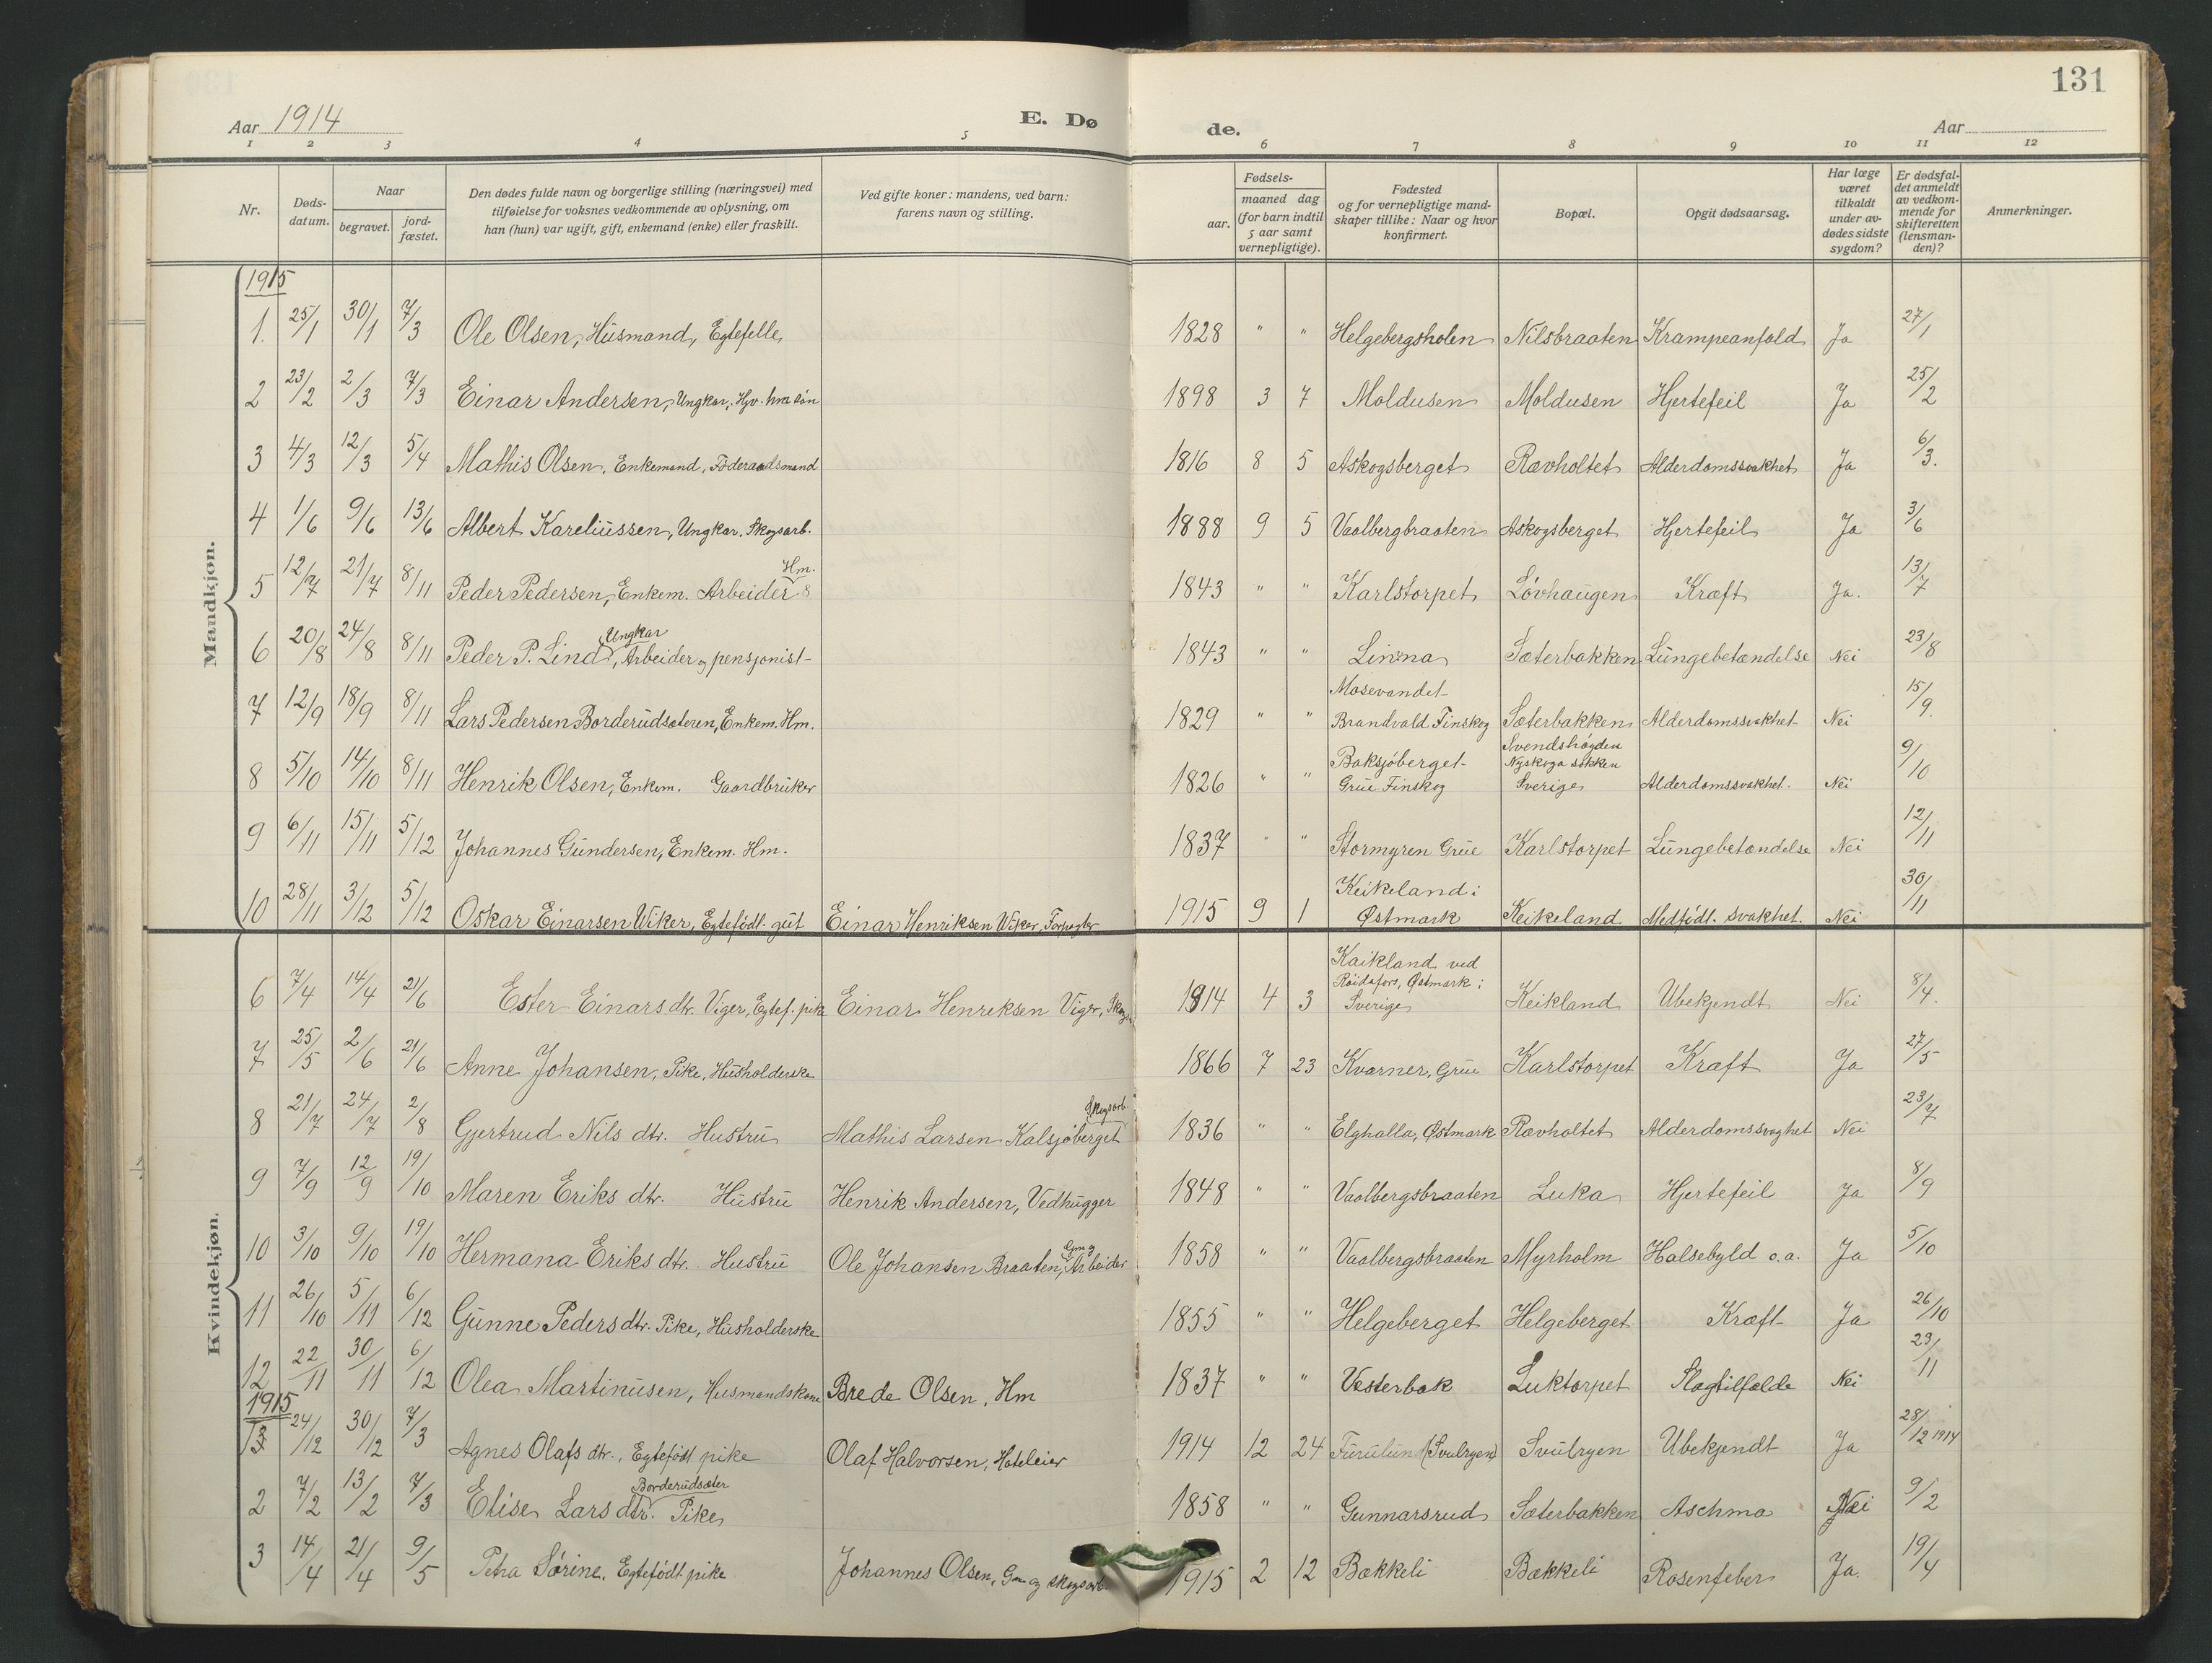 131
Aar 1914
E. Dø
de.
Aar
1 2 3 4 5 6 7 8 9 10 11 12
Nr.
Døds-
datum.
Naar
begravet.
jord-
fæstet.
Den dødes fulde navn og borgerlige stilling (næringsvei) med
tilføielse for voksnes vedkommende av oplysning, om
han (hun) var ugift, gift, enkemand (enke) eller fraskilt.
Ved gifte koner: mandens, ved barn:
farens navn og stilling.
Fødsels-
aar.
maaned dag
(for barn indtil
5 aar samt
vernepligtige).
Fødested
og for vernepligtige mand-
skaper tillike: Naar og hvor
konfirmert.
Bopæl.
Opgit dødsaarsag.
Har læge
været
tilkaldt
under av-
dødes sidste
sygdom?
Er dødsfal-
det anmeldt
av vedkom-
mende for
skifteretten
(lensman-
den)?
Anmerkninger.
Mandkjøn.
1915
1. 25/1 30/1 7/3 Ole Olsen, Husmand, Egtefelle 1828 " " Helgebergsholen Nilsbraaten Krampeanfald Ja 27/1
2 23/2 2/3 7/3 Einar Andersen, Ungkar, 1898 3 7 Moldusen Moldusen Hjertefeil Ja 25/2
3 4/3 12/3 5/4 Mathis Olsen, Enkemand, Föderaadsmand 1816 8 5 Askogsberget Rævholtet Alderdomssvakhet Ja 6/3.
4 1/6 9/6 13/6 Albert Kareliussen, Ungkar. Skogsarb. 1888 9 5 Vaalbergbraaten Askogsberget Hjertefeil Ja 3/6
Hm.
5 12/7 21/7 8/11 Peder Pedersen, Enkem. Arbeider 1843 " " Karlstorpet Lövhaugen Kræft Ja. 13/7
Ungkar
6 20/8 24/8 8/11 Peder P. Lind, Arbeider og pensjonist 1843 " " Linna Sæterbakken Lungebetændelse Nei 23/8
Mosevandet
7 12/9 18/9 8/11 Lars Pedersen Borderudsæteren, Enkem. Hm. 1829 " " Brandvald Finskog Sæterbakken Alderdomssvakhet Nei 15/9.
Baksjöberget Svendshögden
Nyskoga sokken
8 5/10 14/10 8/11 Henrik Olsen, Enkem. Gaardbruker 1826 " " Grue Finskog Sverige Alderdomssvakhet. Nei 9/10
9 6/11 15/11 5/12 Johannes Gundersen, Enkem. Hm. 1837 " " Stormyren Grue Karlstorpet Lungebetændelse Nei 12/11
Keikeland i
10 28/11 3/12 5/12 Oskar Einarsen Wiker, Egtefödt gut Einar Henriksen Wiker, Forpagter 1915 9 1 Østmark Keikeland Medfödt. svakhet. Nei 30/11
Kvindekjøn.
Kaikland ved
Röidafors, Østmark i
6 7/4 14/4 21/6 Ester Einarsdtr. Viger, Egtef. pike Einar Henreksen Viger, 1914 4 3 Sverige Keikland Ubekjendt Nei 8/4.
7 25/5 2/6 21/6 Anne Johansen, Pike, Husholderske 1866 7 23 Kvarner, Grue Karlstorpet Kræft Ja 27/5
Skogsarb.
8 21/7 24/7 2/8 Gjertrud Nils dtr. Hustru Mathis Larsen Kalsjöberget 1836 " " Elghalla, Østmark Rævholtet Alderdomssvaghet Nei 23/7
9 7/9 12/9 19/10 Maren Eriks dtr. Hustru Henrik Andersen, Vedhugger 1848 " " Vaalbergsbraaten Luka Hjertefeil Ja 8/9
Gm og
10 3/10 9/10 19/10 Hermana Eriks dtr. Hustru Ole Johansen Braaten, Arbeider 1858 " " Vaalbergsbraaten Myrholm Halsebyld o.a. Ja 5/10
11 26/10 5/11 6/12 Gunne Pedersdtr. Pike, Husholderske 1855 " " Helgeberget Helgeberget Kræft Ja 26/10
12 22/11 30/11 6/12 Olea Martinusen, Husmandskone Brede Olsen, Hm 1837 " " Vesterbak Luktorpet Slagtilfælde Nei 23/11
1915
24/12 30/12 7/3 Agnes Olafs dtr., Egtefödt pike Olaf Halvorsen, Hoteleier 1914 12 24 Furulund (Svulryen) Svulryen Ubekjendt Ja 28/12 1914
Borderudsæter
2 7/2 13/2 7/3 Elise Lars dtr. Pike 1858 " " Gunnarsrud Sæterbakken Aschma Nei 9/2
3 14/4 21/4 9/5 Petra Sörine, Egtefödt pike Johannes Olsen, Gm og skogsarb. 1915 2 12 Bakkeli Bakkeli Rosenfeber Ja. 19/4